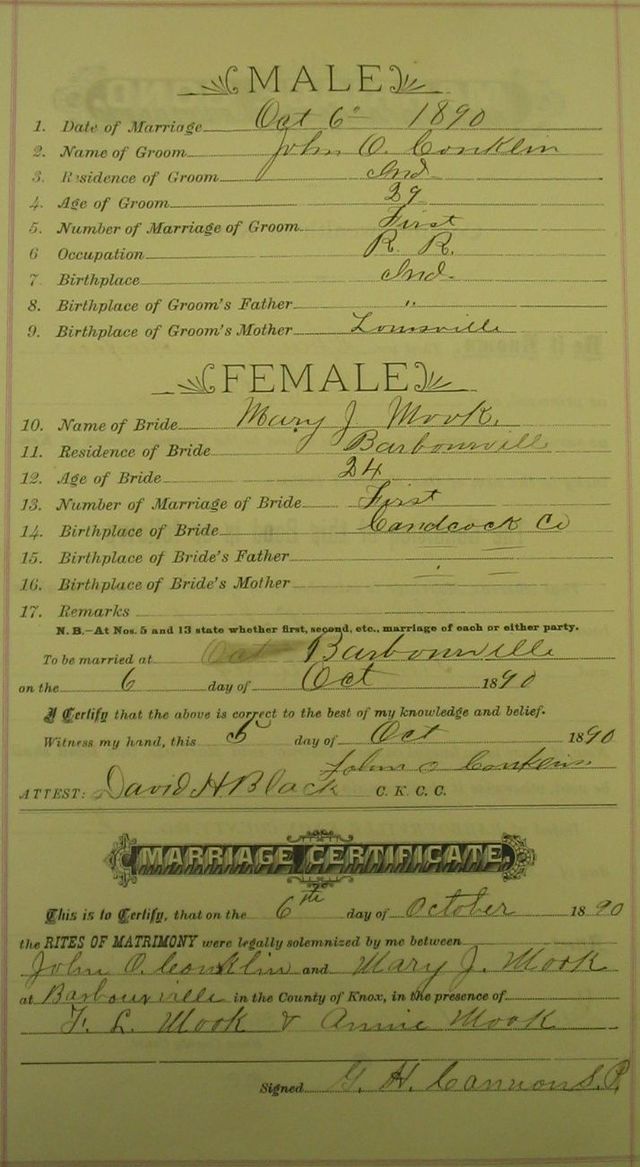 MALE
1. Date of Marriage Oct 6" 1890
2. Name of Groom John O. Conklin
3. Residence of Groom Ind
4. Age of Groom 29
5. Number of Marriage of Groom First
6 Occupation R. R.
7 Birthplace Ind
8. Birthplace of Groom's Father "
9. Birthplace of Groom's Mother Louisville
FEMALE
10. Name of Bride Mary J Mook.
11. Residence of Bride Barbourville
12. Age of Bride 24
13. Number of Marriage of Bride First
14. Birthplace of Bride Co
15. Birthplace of Bride's Father
16. Birthplace of Bride's Mother
17. Remarks
N. B.—At Nos. 5 and 13 state whether first, second, etc., marriage of each or either party.
To be married at Barbourville
on the 6 day of Oct 1890
I Certify that the above is correct to the best of my knowledge and belief.
Witness my hand, this 5 day of Oct 1890
John O Conklin
ATTEST: David H Black C. K. C. C.
MARRIAGE CERTIFICATE.
This is to Certify, that on the 6th day of October 1890
the RITES OF MATRIMONY were legally solemnized by me between
John O. Conklin and Mary J. Mook
at Barbourville in the County of Knox, in the presence of
F. L. Mook & Annie Mook
Signed G. H. Cannon